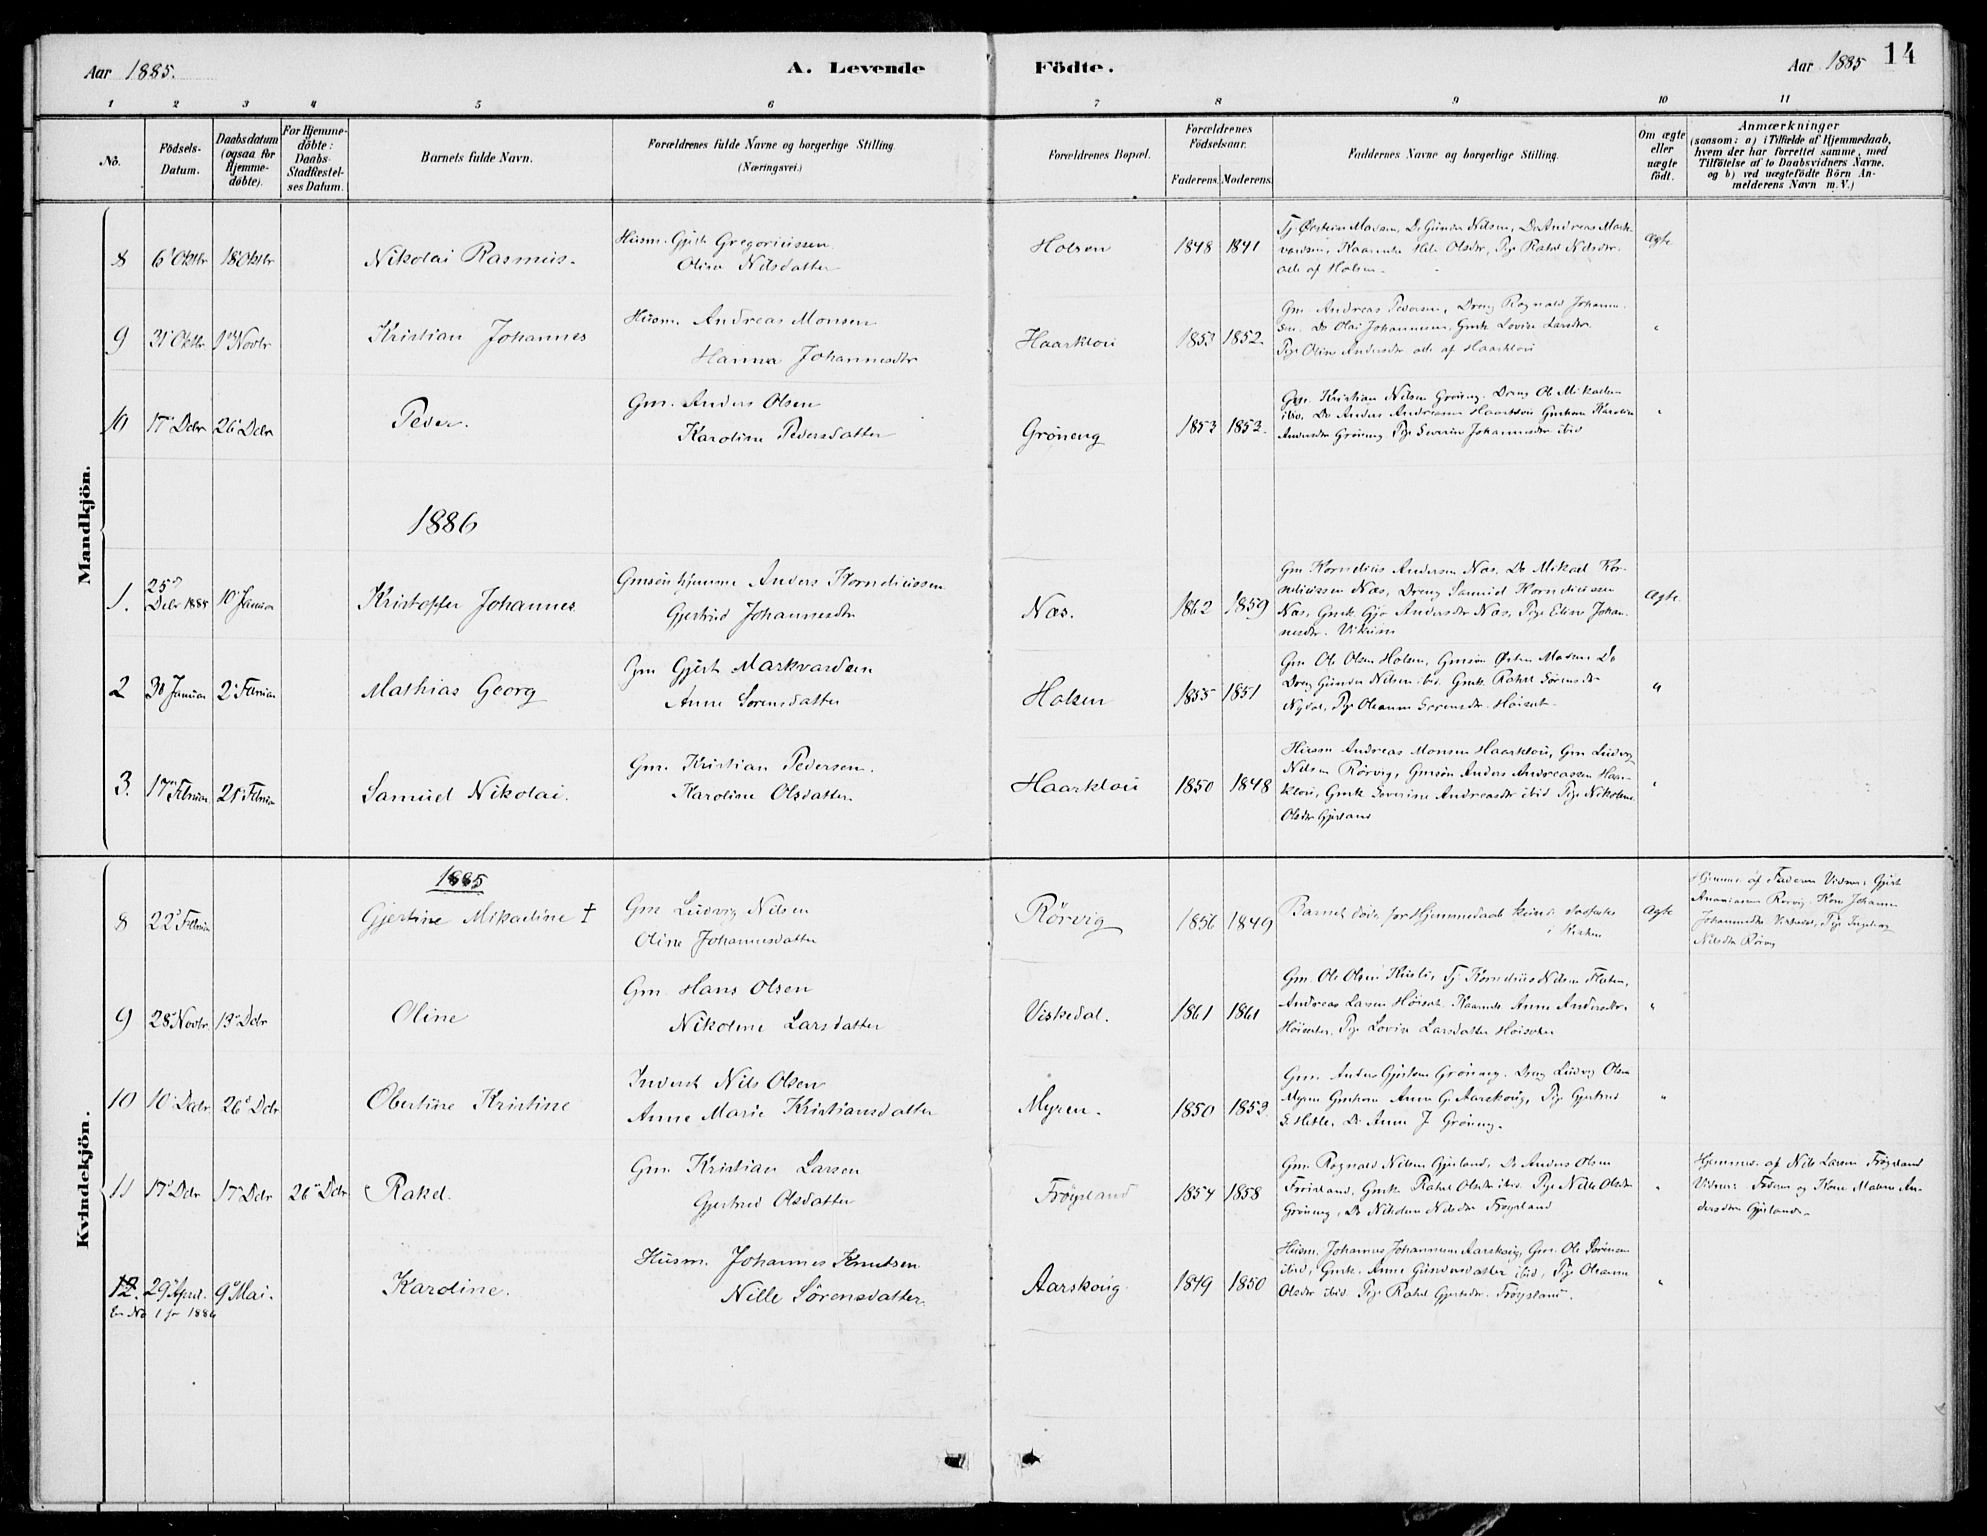 Aar 1885.
A. Levende
Födte.
Aar 1885
14
1
2
3
4
5
6
7
8
9
10
11
No.
Födsels-
Datum.
Daabsdatum
(ogsaa för
Hjemme-
döbte).
For Hjemme-
döbte:
Daabs-
Stadfæstel-
ses Datum.
Barnets fulde Navn.
Forældrenes fulde Navne og borgerlige Stilling
(Næringsvei.)
Forældrenes Bopæl.
Forældrenes
Födselsaar.
Faderens. Moderens.
Faddernes Navne og borgerlige Stilling.
Om ægte
eller
uægte
født.
Anmærkninger
(saasom: a) i Tilfælde af Hjemmedaab,
hvem der har forrettet samme, med
Tilföielse af to Daabsvidners Navne,
og b) ved uægtefödte Börn An-
melderens Navn m. V.)
Mandkjön.
8 6 Oktbr 18 Oktbr
Nikolai Rasmus.
Husm. Gjert Gregoriussen
Oline Nilsdatter
Holsen
1848 1841
Tj. Østein Madsen, Do Gunder Nilsen, Do Andreas Mark-
vardsen, Olsdr, Pige Rakel Nilsdr.
alle af Holsen.
Ægte
9 31 Oktbr Novbr
Kristian Johannes
Husm. Andreas Monsen
Hanna Johannesdtr
Haarklou
1853 1852
Gm Andreas Pedersen, Dreng Ragnald Johannes-
sen, Do Olai Johannessen, Gmk Lovise Larsdtr
Pige Oline Andersdtr alle af Haarklou
"
10 17 Debr 26 Debr
Peder.
Gm. Anders Olsen
Karoline Pedersdatter
Gröneng
1853 1853.
Gm. Kristian Nilsen Gröneng. Dreng Ole Mikalsen
ibid. Do Anders Andreassen Haarklou Gmkone Karoline
Andersdtr Gröneng Pige Severine Johannesdtr ibid
"
1886
1. 25 Debr 1885 10 Januar
Kristoffer Johannes
Gmsön hjemme Anders Korneliussen
Gjertrud Johannesdtr
Næs.
1862 1859
Gm Kornelius Andersen Næs. Do Mikael Kor-
neliussen Næs, Dreng Samuel Korneliussen
Næs, Gmk Andersdtr Næs, Pige Eline Johan-
nesdtr. Vikum
Ægte
2 30 Januar 2 Februar
Mathias Georg
Gm Gjert Markvardsen
Anne Sörensdatter
Holsen
1855 1851
Gm Ole Olsen Holsen, Gmsön Østen Madsen Do
Dreng Gunder Nilsen ibid. Gmk. Rakel Sörensdtr
Nydal, Pige Oleanne Sörensdtr. Höisæt
"
3. 17 Februar 21 Februar
Samuel Nikolai.
Gm. Kristian Pedersen.
Karoline Olsdatter.
Haarklou
1850 1848
Husm Andreas Monsen Haarklou, Gm Ludvig
Nilsen Rörvig, Gmsön Anders Andreassen Haar-
klou, Gmk Severine Andreasdtr ibid Pige Nikoline
Olsdtr Gjerland
"
Kvindekjön.
1885
8 22 Februar
Gjertine Mikaeline †
Gm Ludvig Nilsen
Oline Johannesdatter
Rörvig
1856 1849
Barnet döde før Hjemmedaab kunde stadfæstes
i Kirken
Ægte
Hjemmed. af Faderen Vidner: Gjert
Ananiasen Rörvig, Kone Johanne
Johannesdtr Viskedal, Pige Ingeborg
Nilsdtr Rörvig
9 28 Novbr. 13 Debr
Oline
Gm. Hans Olsen
Nikoline Larsdatter
Viskedal.
1861 1861
Gm. Ole Olsen, Tj Kornelius Nilsen Flaten,
Andreas Larsen Höisæt. Anne Andersdtr
Höisæter, Pige Lovise Larsdatter Höisæter
"
10 10 Debr. 26 Debr
Obertine Kristine
Inderst Nils Olsen
Anne Marie Kristiansdatter
Myren.
1850 1852
Gm. Anders Gjertsen Gröneng. Dreng Ludvig Olsen
Myren Gmkone Anne G. Aarskoug, Pige Gjertrud
S. Hetle, Do Anne J Gröneng.
"
11 17 Debr 17 Debr 26 Debr
Rakel.
Gm. Kristian Larsen
Gjertrud Olsdatter
Fröysland
1854 1858
Gm. Ragnald Nilsen Gjerland, Do Anders Olsen
Fröisland, Gmk Rakel Olsdtr ibid. Pige Nille Olsdtr
Gröneng, Do Nikoline Nilsdtr Fröysland
"
Hjemmed. af Nils Larsen Fröysland
Vidner: Faderen og Kone Malene An-
dersdtr Gjerland.
12. 29 April. 9 Mai.
Er No 1 for 1886
Karoline.
Husm. Johannes Knutsen
Nille Sörensdatter.
Aarskoug.
1849 1850
Husm. Johannes Johannessen Aarskoug, Gm. Ole Sörensen
ibid, Gmk. Anne Gundersdatter ibid, Pige Oleanne
Olsdtr ibid. Pige Rakel Gjertsdtr. Fröysland.
"